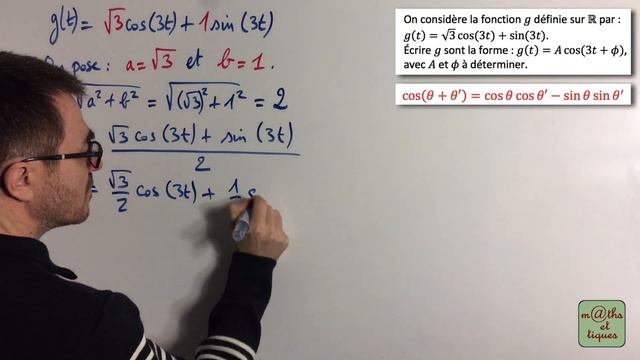 g(t) = √3 cos(3t) + 1 sin (3t)
pose : a = √3 et b = 1.
√a² + b² = √(√3)² + 1² = 2
√3 cos (3t) + sin (3t)
2
= √3/2 cos (3t) + 1
On considère la fonction g définie sur ℝ par :
g(t) = √3 cos(3t) + sin(3t).
Écrire g sont la forme : g(t) = A cos(3t + ϕ),
avec A et ϕ à déterminer.
cos(θ + θ′) = cos θ cos θ′ − sin θ sin θ′
m@ths
et
tiques